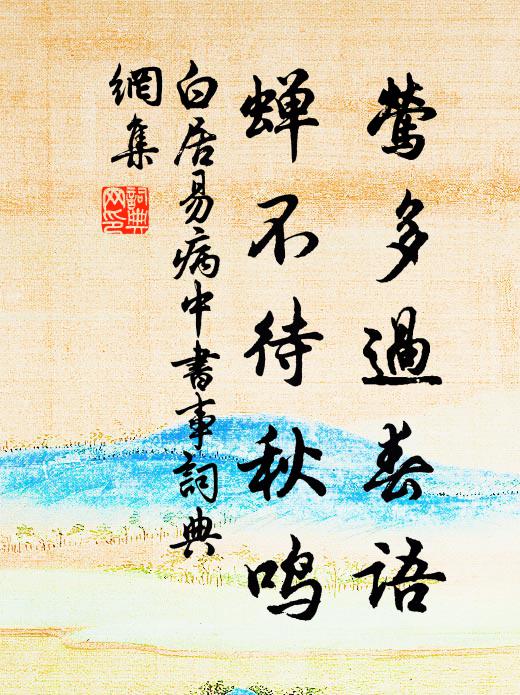 莺多過春语
蝉不待秋鸣
白居易病中書事詞典
網集
詞典
网印